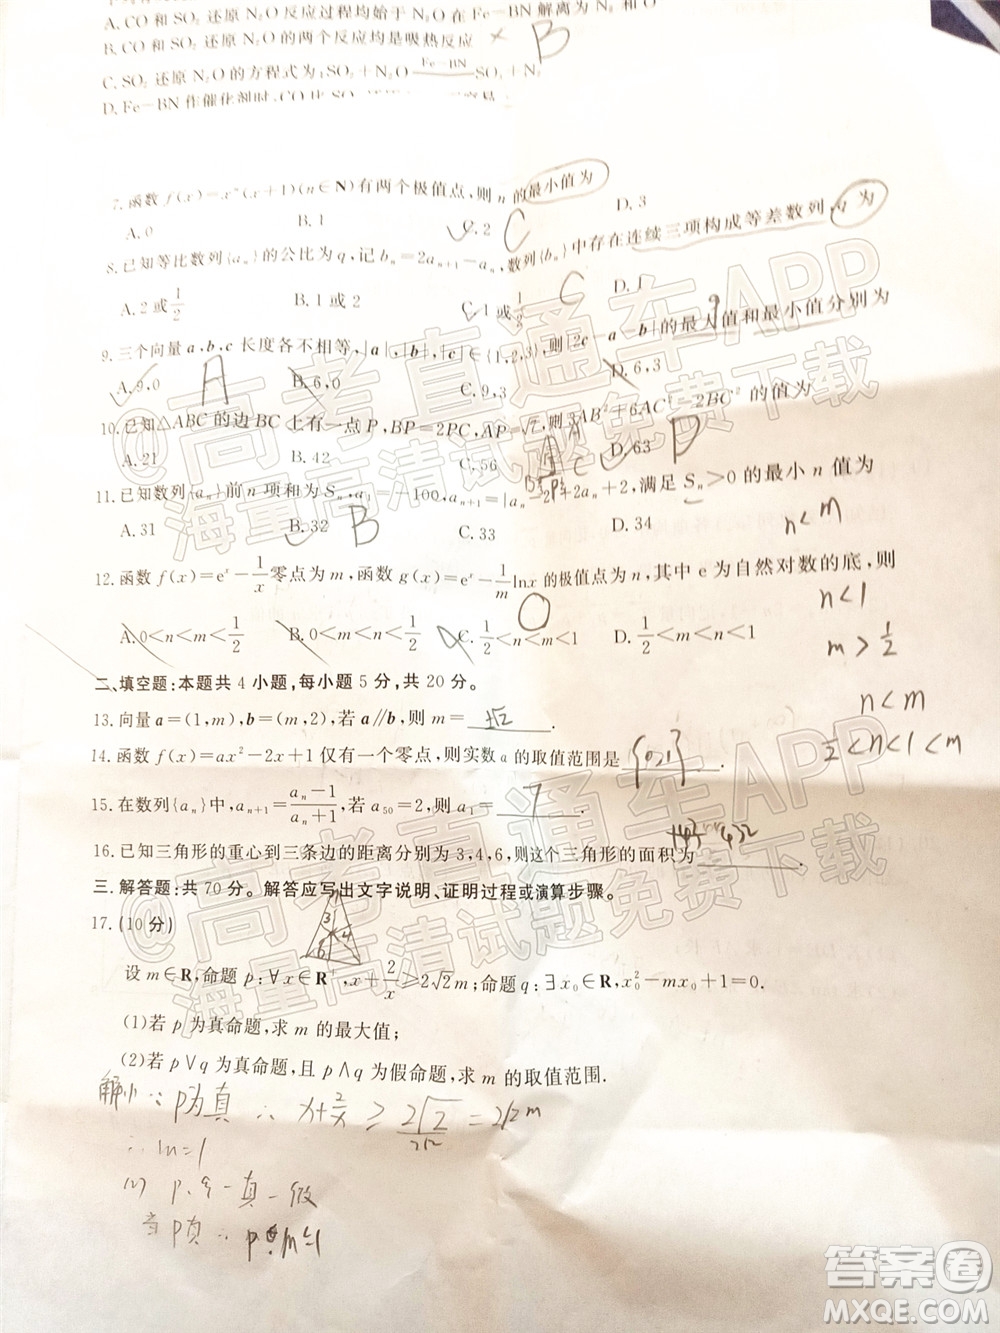 A. CO 和 SO₂ 还原 N₂O 反应过程均始于 N₂O 在 Fe-BN 解离为 N₂ 和 O
B. CO 和 SO₂ 还原 N₂O 的两个反应均是吸热反应 × B
C. SO₂ 还原 N₂O 的方程式为:SO₂+N₂O Fe-BN SO₃+N₂
D. Fe-BN 作催化剂时, CO 比 SO₂
7. 函数 f(x)=xⁿ(x+1)(n∈N)有两个极值点,则 n 的最小值为
A. 0 B. 1 C. 2 C D. 3
8. 已知等比数列{aₙ}的公比为 q,记 bₙ=2aₙ₊₁-aₙ,数列{bₙ}中存在连续三项构成等差数列,q 为
A. 2 或 1/2 B. 1 或 2 C. 1 或 1/2 C D. 1
9. 三个向量 a,b,c 长度各不相等,|a|,|b|,|c|∈{1,2,3},则|2c-a-b|的最大值和最小值分别为
A. 9,0 A B. 6,0 C. 9,3 D. 6,3
10. 已知△ABC 的边 BC 上有一点 P,BP=2PC,AP=√7,则 3AB²+6AC²-2BC² 的值为
A. 21 B. 42 C. 56 D. 63 D
11. 已知数列{aₙ}前 n 项和为 Sₙ,a₁=-100,aₙ₊₁=|aₙ-2|+2aₙ+2,满足 Sₙ>0 的最小 n 值为
A. 31 B. 32 B C. 33 D. 34
n<m
12. 函数 f(x)=eˣ-1/x 零点为 m,函数 g(x)=eˣ-1/m lnx 的极值点为 n,其中 e 为自然对数的底,则
n<1
A. 0<n<m<1/2 B. 0<m<n<1/2 C. 1/2<n<m<1 D. 1/2<m<n<1
m>1/2
二、填空题:本题共 4 小题,每小题 5 分,共 20 分。
n<m
13. 向量 a=(1,m),b=(m,2),若 a∥b,则 m= ±√2 .
1/2<n<1<m
14. 函数 f(x)=ax²-2x+1 仅有一个零点,则实数 a 的取值范围是 {0,1} .
15. 在数列{aₙ}中,aₙ₊₁=(aₙ-1)/(aₙ+1),若 a₅₀=2,则 a₁= 7 .
16. 已知三角形的重心到三条边的距离分别为 3,4,6,则这个三角形的面积为 432 .
三. 解答题:共 70 分。解答应写出文字说明、证明过程或演算步骤。
17. (10 分)
3 4 6
设 m∈R,命题 p:∀x∈R⁺,x+2/x≥2√2m,命题 q:∃x₀∈R,x₀²-mx₀+1=0.
(1)若 p 为真命题,求 m 的最大值;
(2)若 p∨q 为真命题,且 p∧q 为假命题,求 m 的取值范围.
解(1) ∵ p为真 ∴ x+2/x ≥ 2√2/2√2 = 2√2m
∴ m=1
(2) p、q 一真一假
当p真 ∴ p: m≤1
@高考直通车APP
海量高清试题免费下载
@高考直通车APP
海量高清试题免费下载
答案圈
MXQE.COM